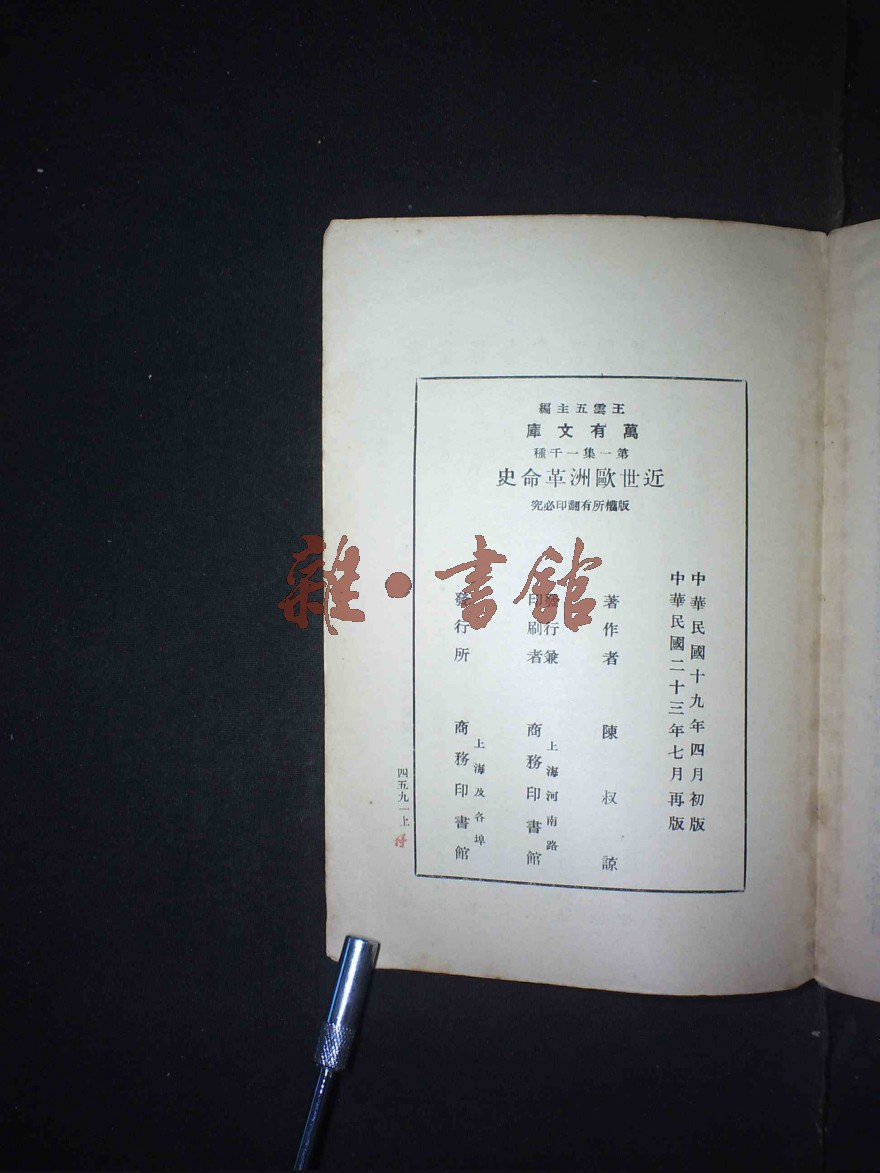 王雲五主編
萬有文庫
第一集一千種
近世歐洲革命史
版權所有翻印必究
中華民國十九年四月初版
中華民國二十三年七月再版
著作者 陳叔諒
發行兼印刷者 上海河南路 商務印書館
發行所 上海及各埠 商務印書館
四五九一上
雜·書館